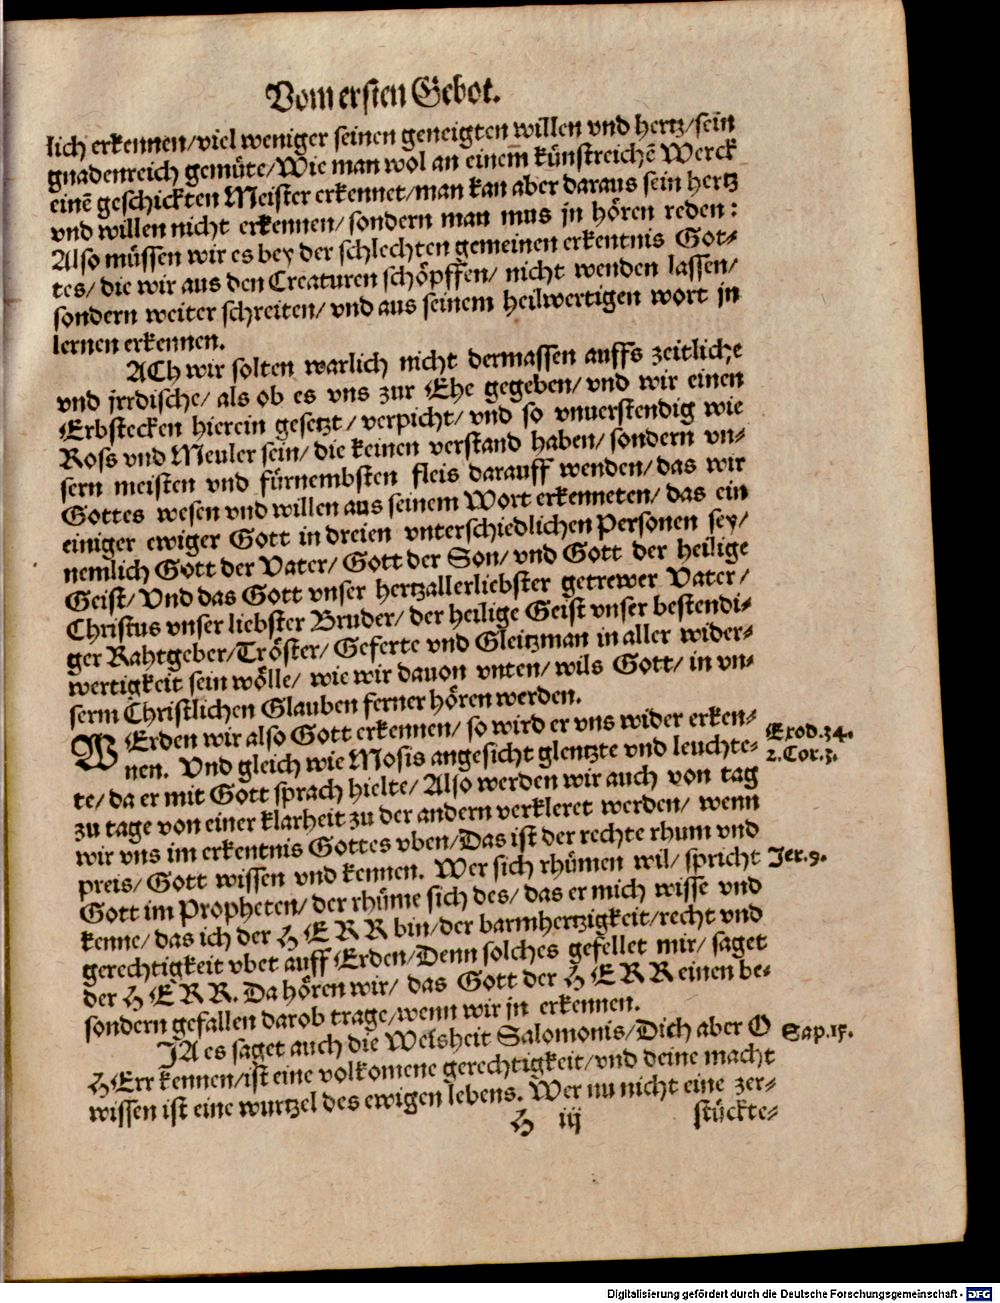 Vom ersten Gebot.
lich erkennen/viel weniger seinen geneigten willen vnd hertz/sein
gnadenreich gemüte/Wie man wol an einem künstreichẽ Werck
einẽ geschickten Meister erkennet/man kan aber daraus sein hertz
vnd willen nicht erkennen/ sondern man mus jn hören reden:
Also müssen wir es bey der schlechten gemeinen erkentnis Got-
tes/ die wir aus den Creaturen schöpffen/ nicht wenden lassen/
sondern weiter schreiten/ vnd aus seinem heilwertigen wort jn
lernen erkennen.
ACh wir solten warlich nicht dermassen auffs zeitliche
vnd jrrdische/ als ob es vns zur Ehe gegeben/ vnd wir einen
Erbstecken hierein gesetzt/ verpicht/ vnd so vnuerstendig wie
Ross vnd Meuler sein/ die keinen verstand haben/ sondern vn-
sern meisten vnd fürnembsten fleis darauff wenden/ das wir
Gottes wesen vnd willen aus seinem Wort erkenneten/ das ein
einiger ewiger Gott in dreien vnterschiedlichen Personen sey/
nemlich Gott der Vater/ Gott der Son/ vnd Gott der heilige
Geist/ Vnd das Gott vnser hertzallerliebster getrewer Vater/
Christus vnser liebster Bruder/ der heilige Geist vnser bestendi-
ger Rahtgeber/Tröster/ Geferte vnd Gleitzman in aller wider-
wertigkeit sein wölle/ wie wir dauon vnten/ wils Gott/ in vn-
serm Christlichen Glauben ferner hören werden.
WErden wir also Gott erkennen/ so wird er vns wider erken-
nen. Vnd gleich wie Mosis angesicht glentzte vnd leuchte-
te/ da er mit Gott sprach hielte/ Also werden wir auch von tag
zu tage von einer klarheit zu der andern verkleret werden/ wenn
wir vns im erkentnis Gottes vben/Das ist der rechte rhum vnd
preis/ Gott wissen vnd kennen. Wer sich rhümen wil/ spricht
Gott im Propheten/ der rhüme sich des/ das er mich wisse vnd
kenne/ das ich der HERR bin/der barmhertzigkeit/recht vnd
gerechtigkeit vbet auff Erden/Denn solches gefellet mir/ saget
der HERR. Da hören wir/ das Gott der HERR einen be-
sondern gefallen darob trage/wenn wir jn erkennen.
JA es saget auch die Weisheit Salomonis/Dich aber O
HErr kennen/ist eine volkomene gerechtigkeit/vnd deine macht
wissen ist eine wurtzel des ewigen lebens. Wer nu nicht eine zer-
H iij
stückte-
Exod.34.
2.Cor.3.
Jer.9.
Sap.15.
Digitalisierung gefördert durch die Deutsche Forschungsgemeinschaft - DFG